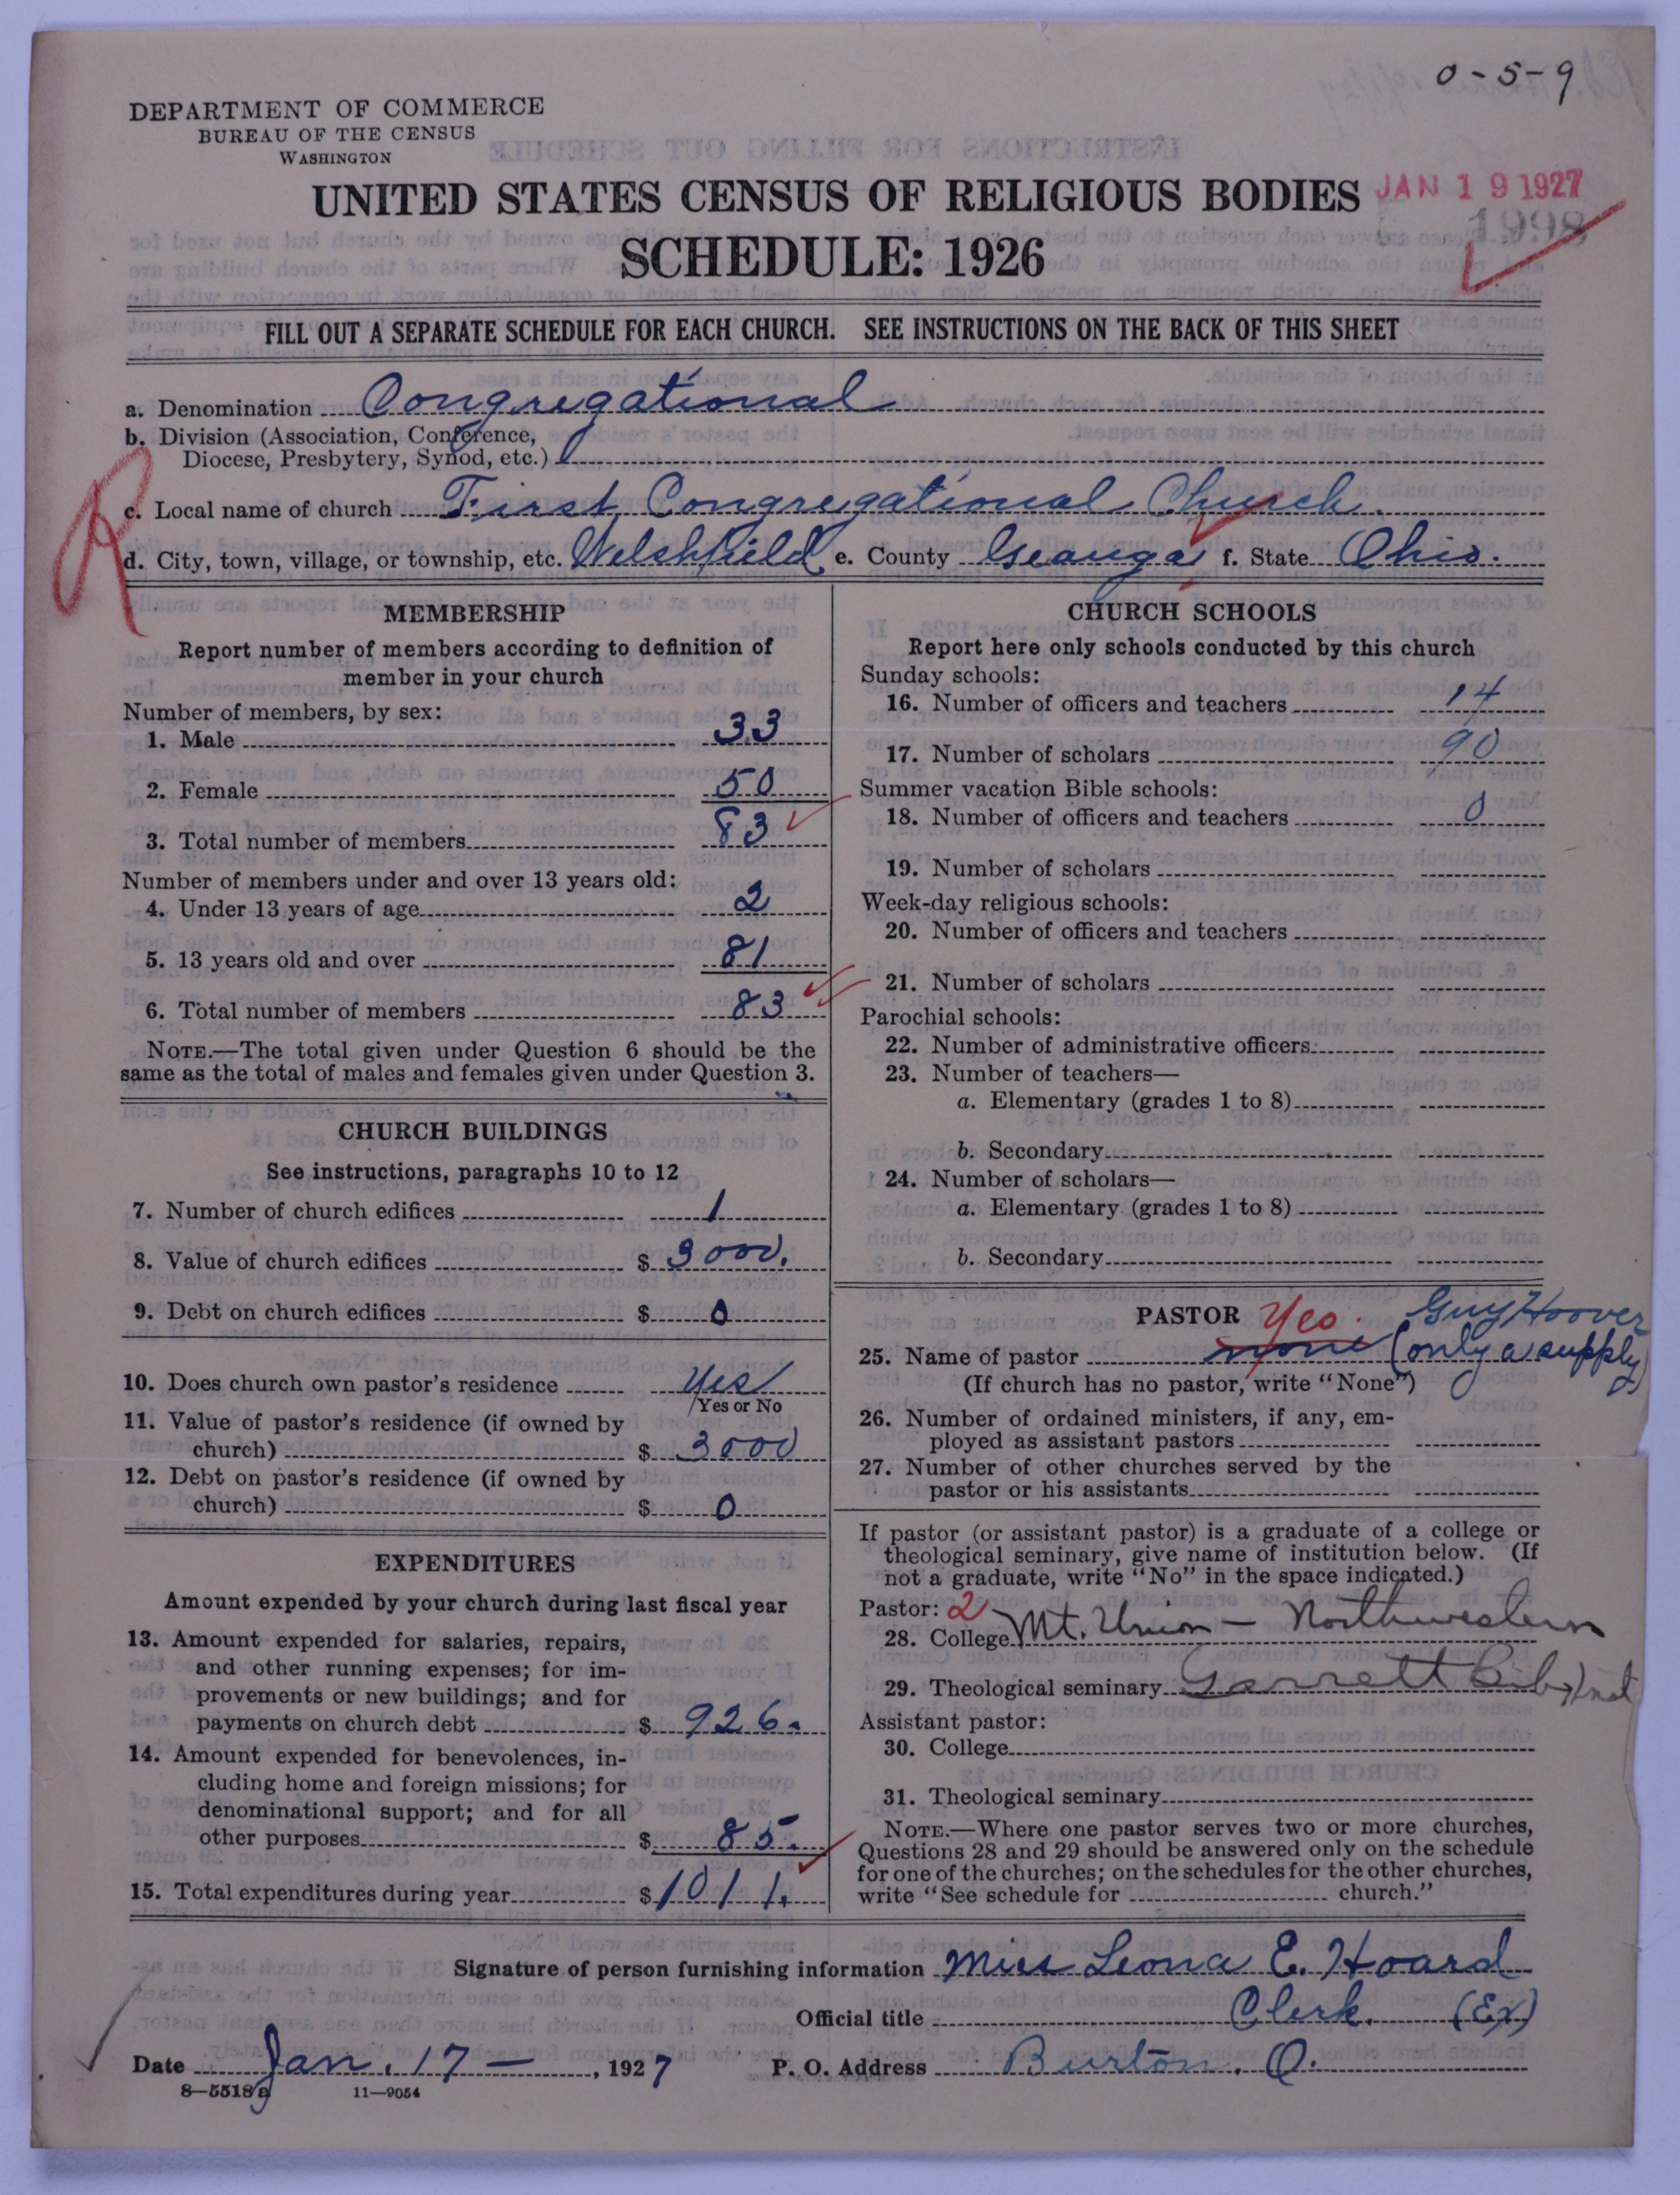 0-5-9
DEPARTMENT OF COMMERCE
BUREAU OF THE CENSUS
WASHINGTON
UNITED STATES CENSUS OF RELIGIOUS BODIES
JAN 19 1927
1998
SCHEDULE: 1926
FILL OUT A SEPARATE SCHEDULE FOR EACH CHURCH. SEE INSTRUCTIONS ON THE BACK OF THIS SHEET
a. Denomination Congregational
b. Division (Association, Conference,
Diocese, Presbytery, Synod, etc.)
R
c. Local name of church First Congregational Church.
d. City, town, village, or township, etc. Welshfield e. County Geauga f. State Ohio.
MEMBERSHIP
Report number of members according to definition of
member in your church
Number of members, by sex:
1. Male 33
2. Female 50
3. Total number of members 83
Number of members under and over 13 years old:
4. Under 13 years of age 2
5. 13 years old and over 81
6. Total number of members 83
NOTE.—The total given under Question 6 should be the
same as the total of males and females given under Question 3.
CHURCH BUILDINGS
See instructions, paragraphs 10 to 12
7. Number of church edifices 1
8. Value of church edifices $ 3000.
9. Debt on church edifices $ 0
10. Does church own pastor's residence Yes
Yes or No
11. Value of pastor's residence (if owned by
church) $ 3000
12. Debt on pastor's residence (if owned by
church) $ 0
EXPENDITURES
Amount expended by your church during last fiscal year
13. Amount expended for salaries, repairs,
and other running expenses; for im-
provements or new buildings; and for
payments on church debt $ 926.
14. Amount expended for benevolences, in-
cluding home and foreign missions; for
denominational support; and for all
other purposes $ 85.
15. Total expenditures during year $ 1011.
CHURCH SCHOOLS
Report here only schools conducted by this church
Sunday schools:
16. Number of officers and teachers 14
17. Number of scholars 90
Summer vacation Bible schools:
18. Number of officers and teachers 0
19. Number of scholars
Week-day religious schools:
20. Number of officers and teachers
21. Number of scholars
Parochial schools:
22. Number of administrative officers
23. Number of teachers—
a. Elementary (grades 1 to 8)
b. Secondary
24. Number of scholars—
a. Elementary (grades 1 to 8)
b. Secondary
PASTOR Yes. Guy Hoover
25. Name of pastor none (only a supply)
(If church has no pastor, write "None")
26. Number of ordained ministers, if any, em-
ployed as assistant pastors
27. Number of other churches served by the
pastor or his assistants
If pastor (or assistant pastor) is a graduate of a college or
theological seminary, give name of institution below. (If
not a graduate, write "No" in the space indicated.)
Pastor: 2
28. College Mt. Union — Northwestern
29. Theological seminary Garrett Bib. Inst
Assistant pastor:
30. College
31. Theological seminary
NOTE.—Where one pastor serves two or more churches,
Questions 28 and 29 should be answered only on the schedule
for one of the churches; on the schedules for the other churches,
write "See schedule for church."
Signature of person furnishing information Miss Leona E. Hoard
Official title Clerk. (Ex)
Date Jan. 17 — , 1927 P. O. Address Burton. O.
8—5518a 11—9054